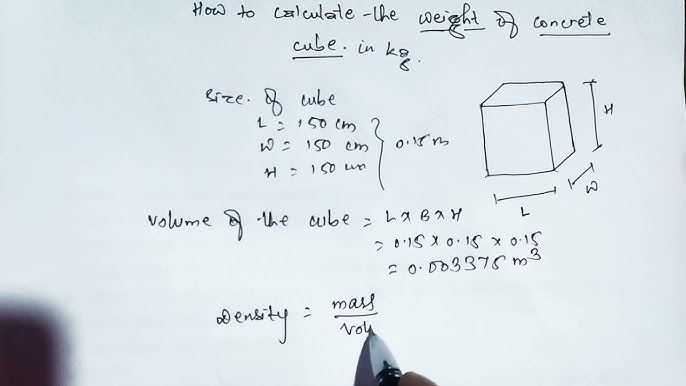 How to calculate the weight of concrete
cube. in kg.
Size. of cube
L = 150 cm
W = 150 cm
H = 150 cm
0.15 m
H
W
L
Volume of the cube = L x B x H
= 0.15 x 0.15 x 0.15
= 0.003375 m³
Density = mass
vol